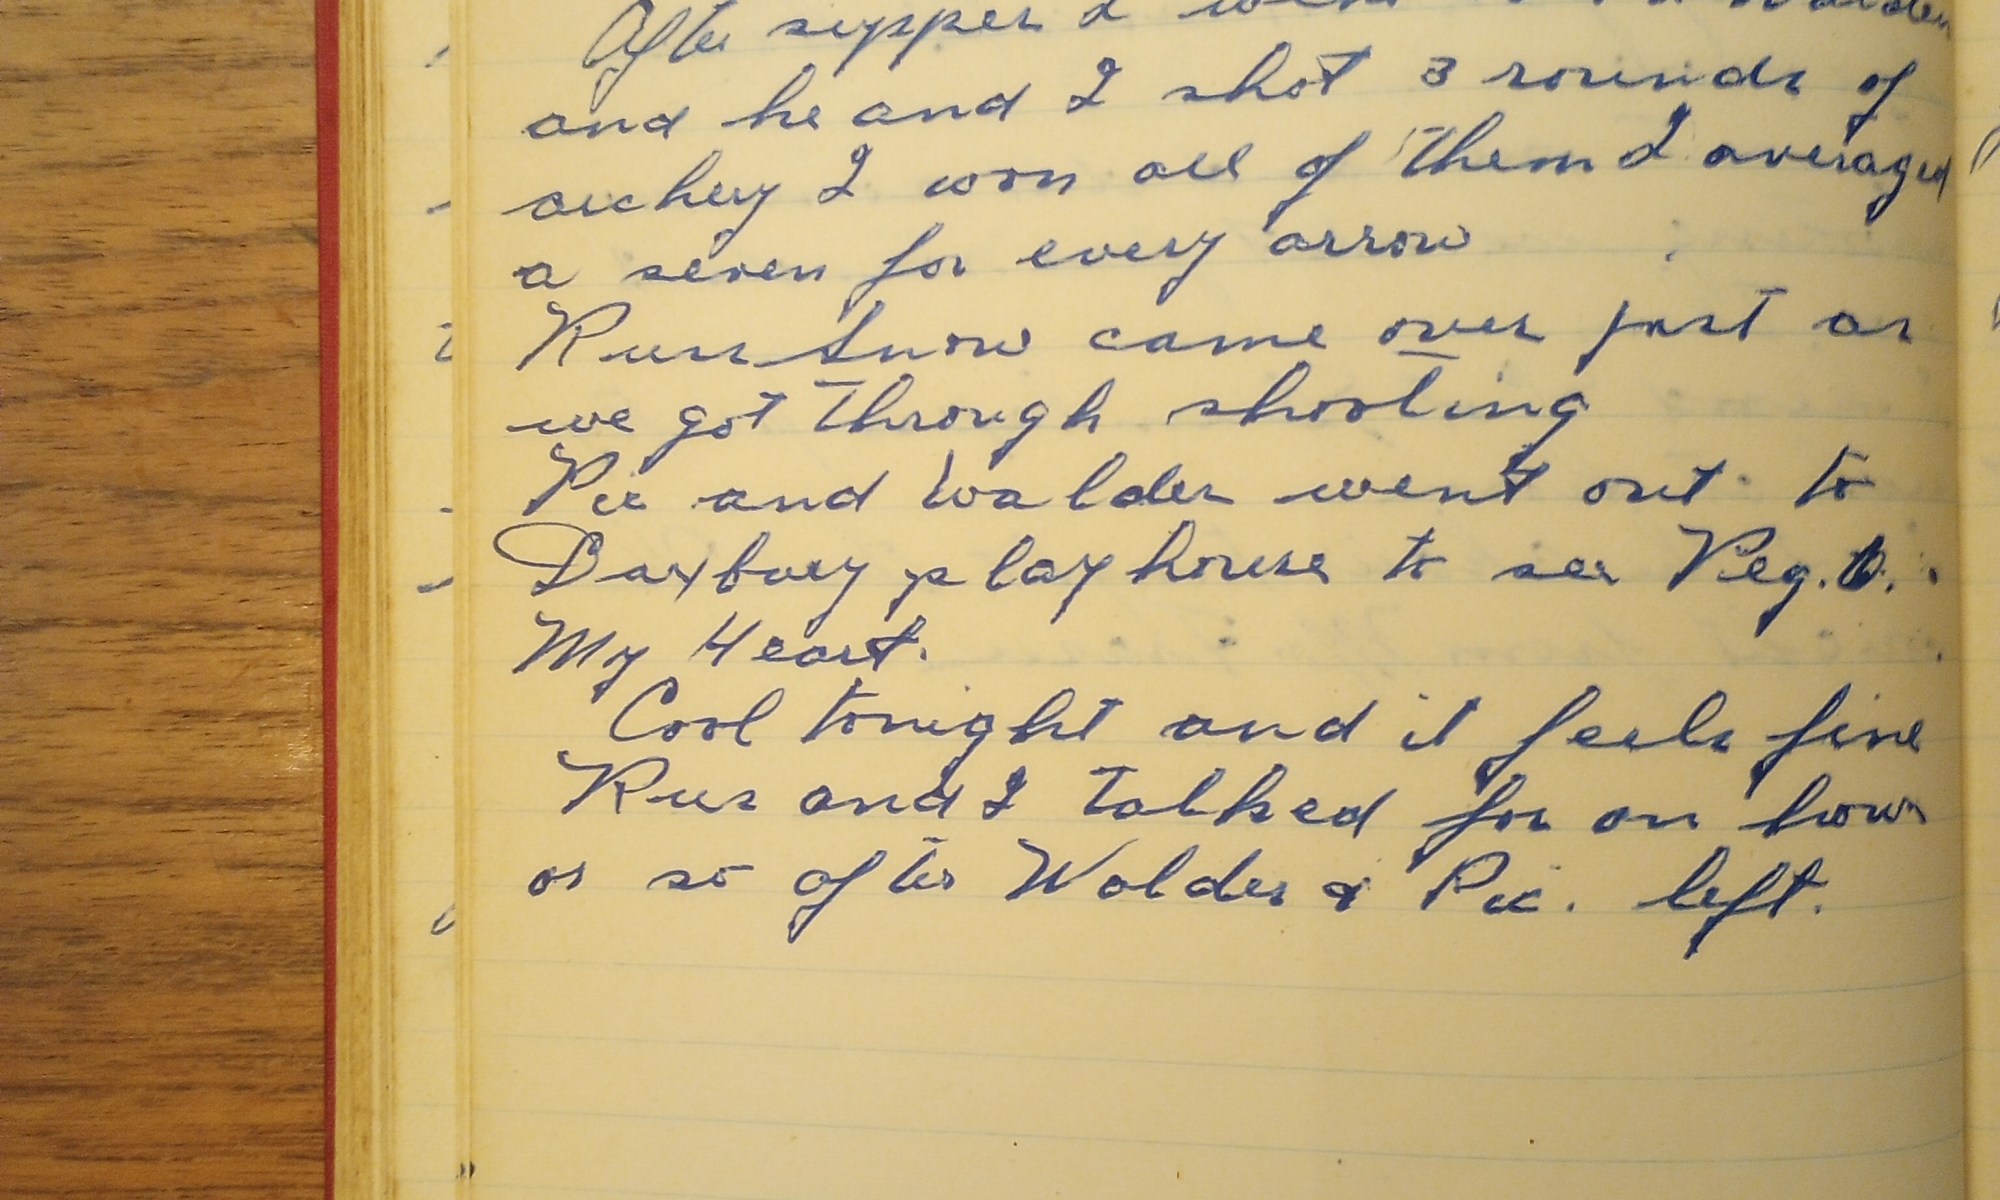 After supper I went
and he and I shot 3 rounds of
archery I won all of them I averaged
a seven for every arrow
Russ Snow came over just as
we got through shooting
Pic and Walder went out to
Duxbury playhouse to see Peg. O.
My Heart.
Cool tonight and it feels fine
Rus and I talked for an hour
or so after Walder & Pic. left.